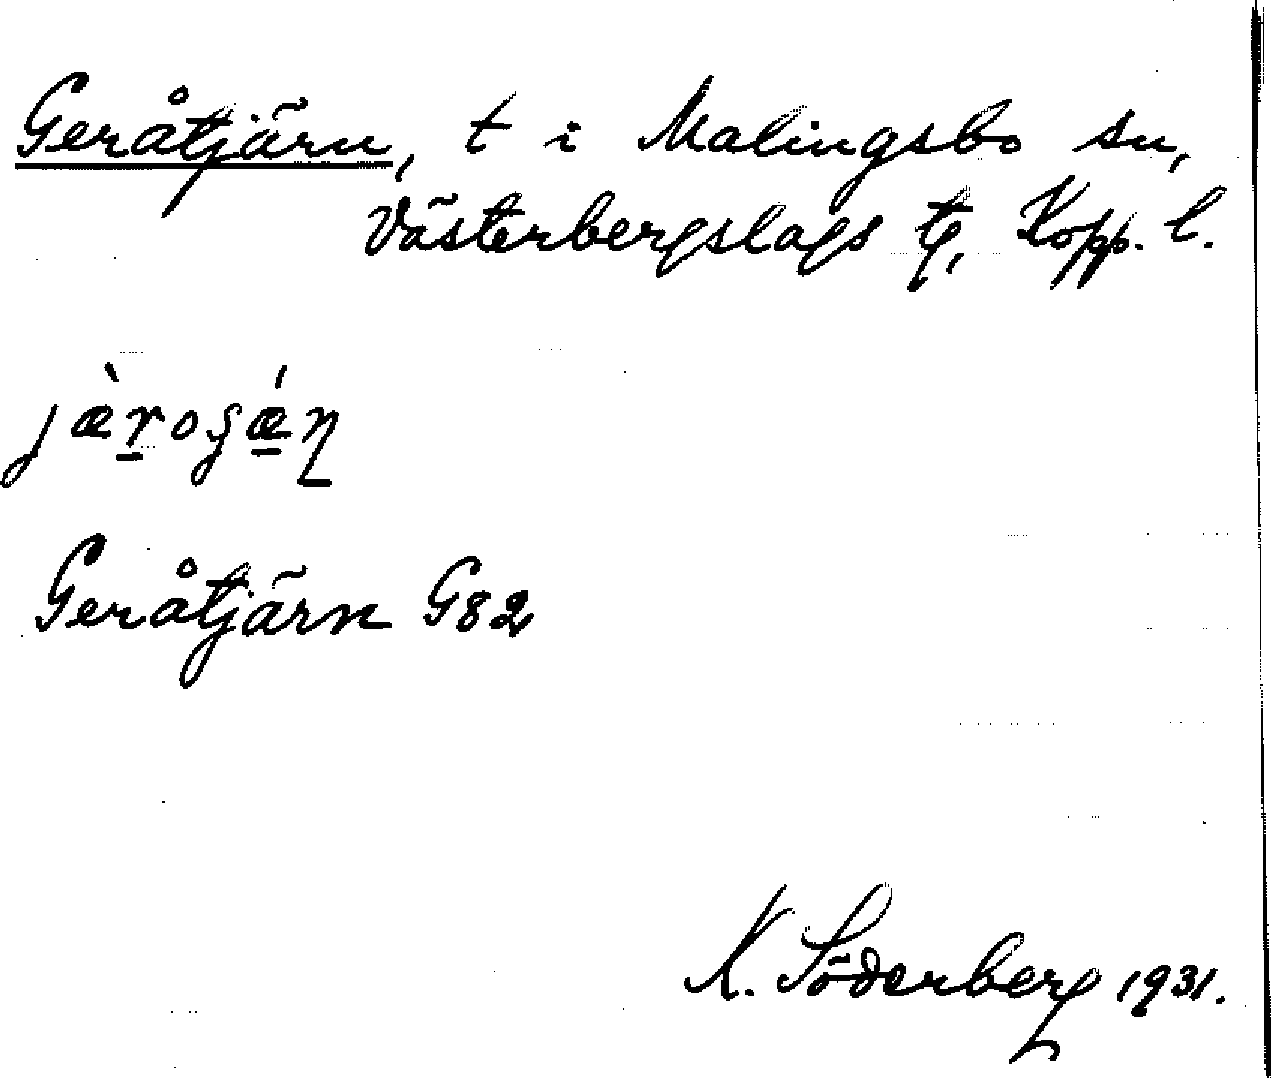 Geråtjärn, t i Malingsbo sn,
Västerbergslags tg, Kopp. l.
jæ̀roʂǽɳ
Geråtjärn G82
K. Söderberg 1931.